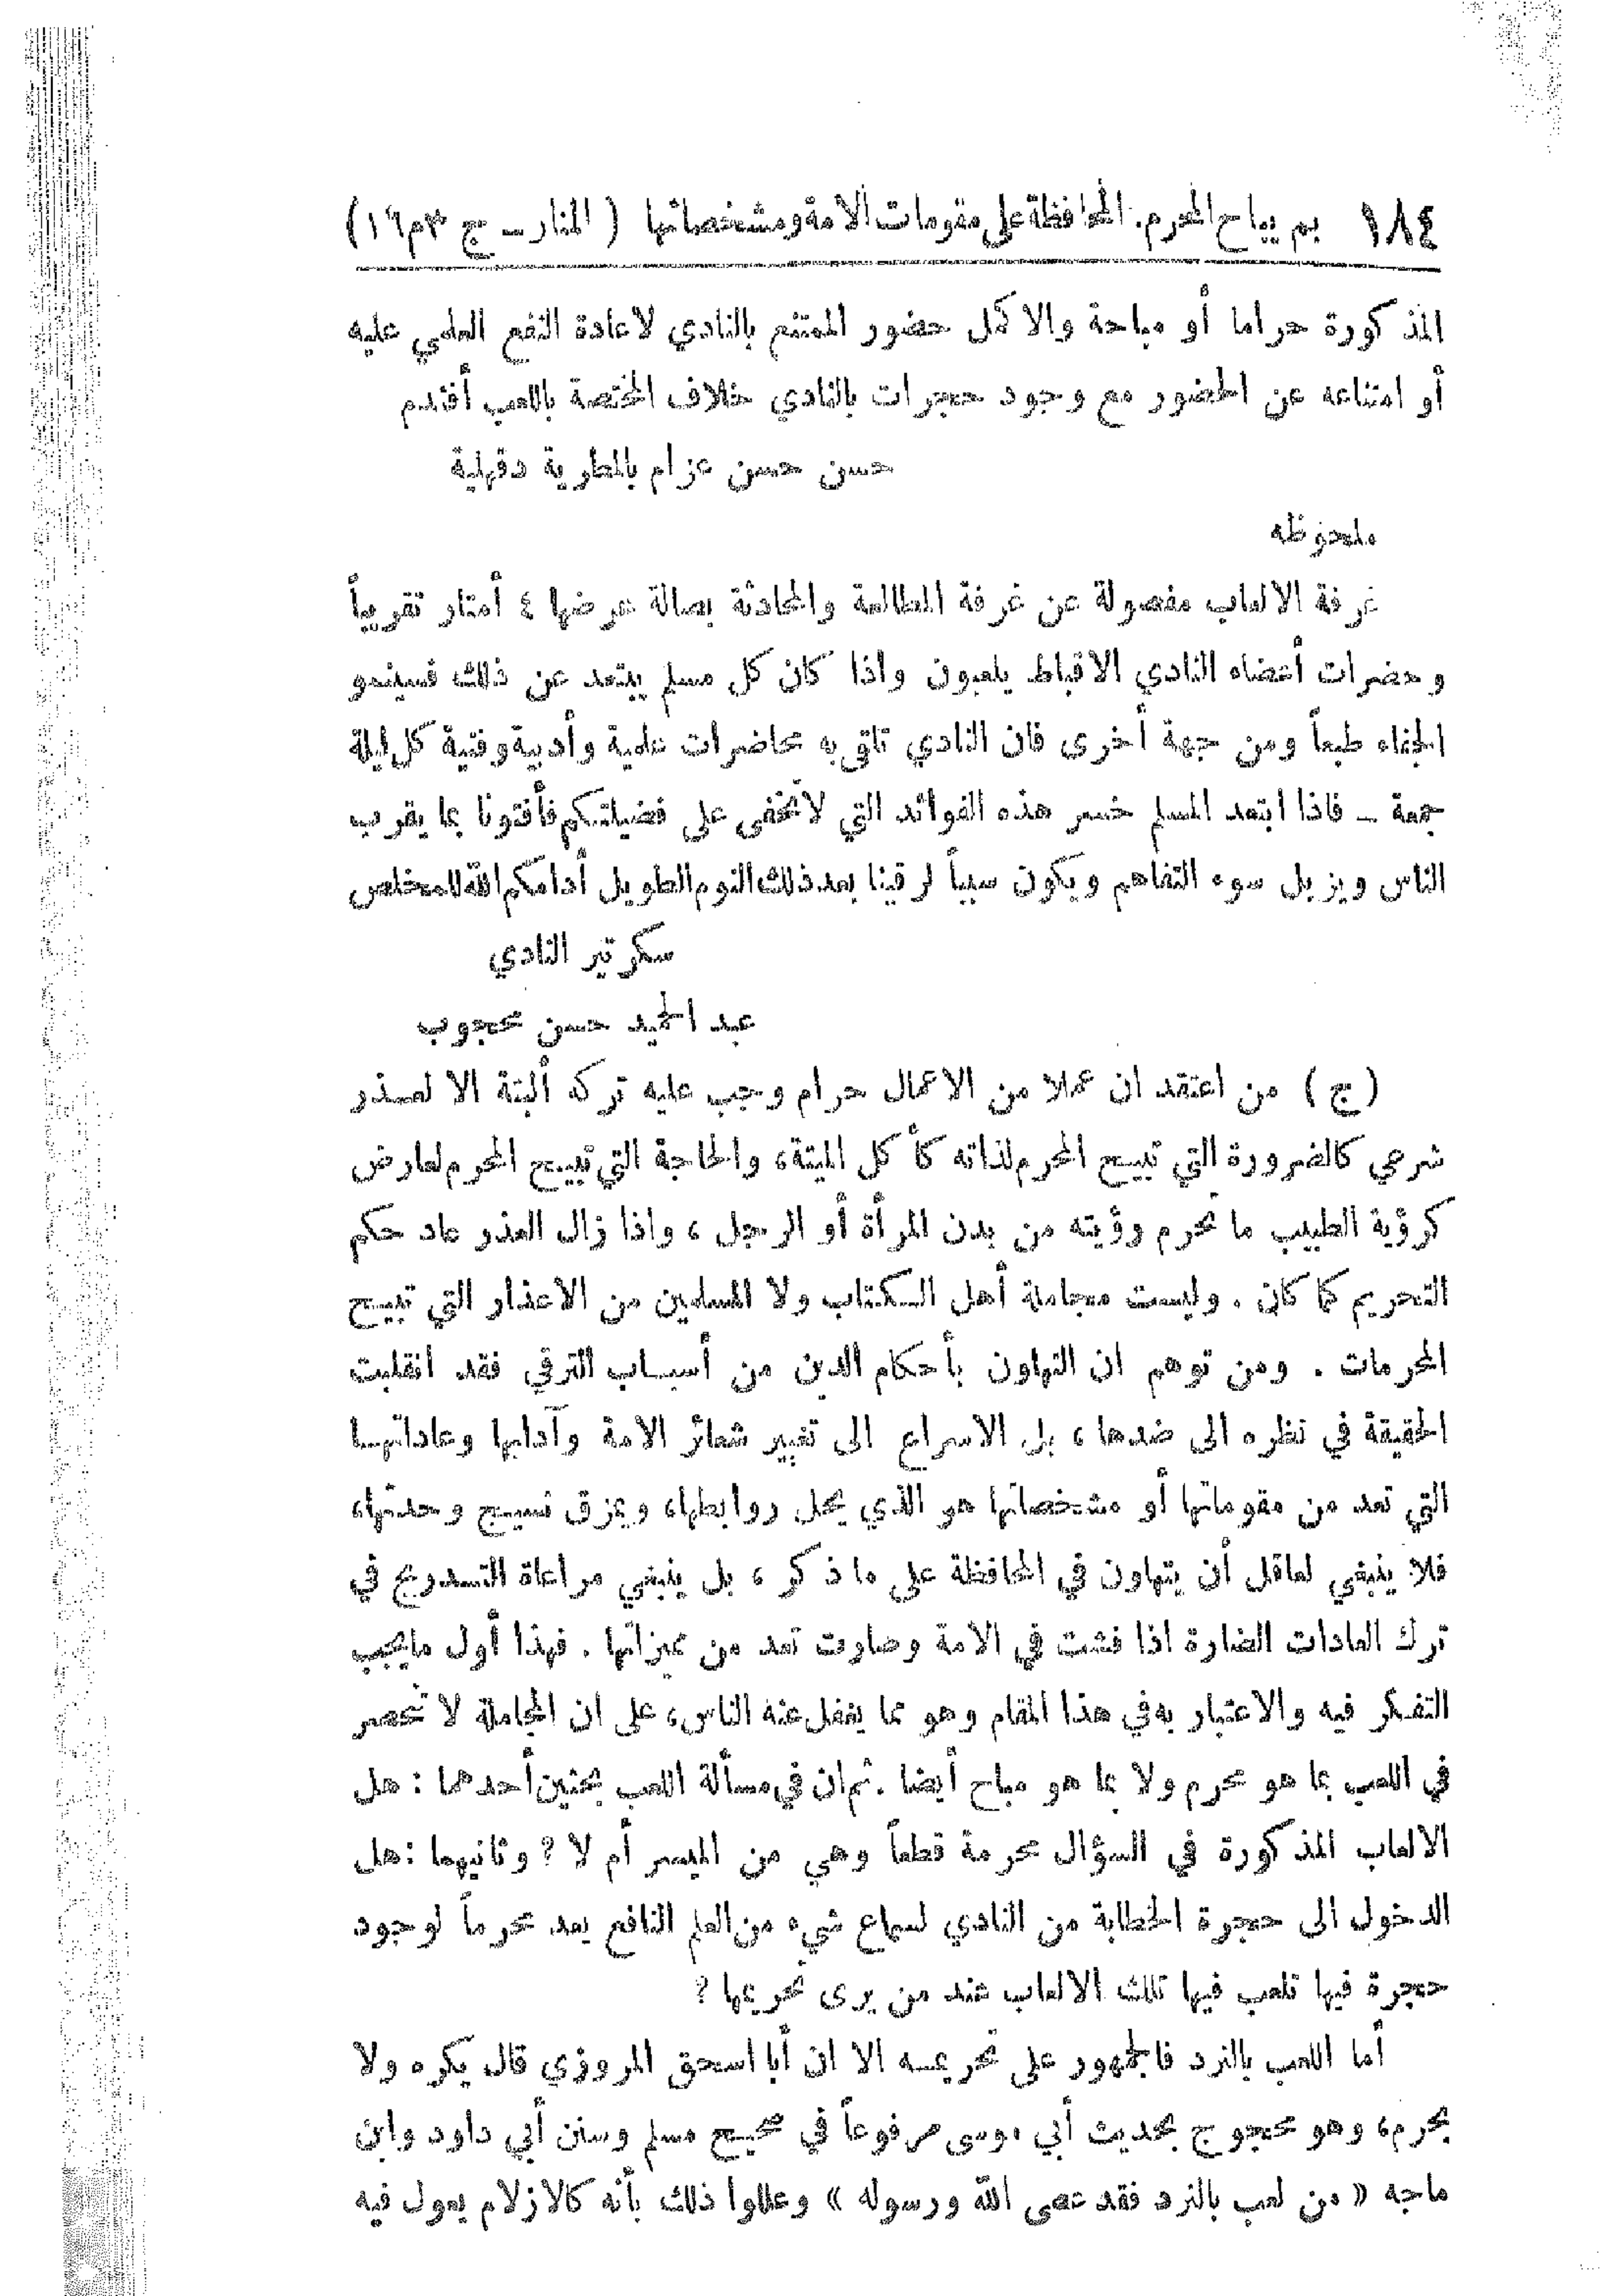 ١٨٤ بم يباح المحرم. المحافظة على مقومات الامة ومشخصاتها ( المنار ــ ج ٣ م ١٦)
المذكورة حراما أو مباحة والاكمل حضور الممتنع بالنادي لاعادة النفع العلمي عليه
أو امتناعه عن الحضور مع وجود حجرات بالنادي خلاف المختصة باللعب أفندم
حسن حسن عزام بالمطرية دقهلية
ملحوظه
غرفة الالعاب مفصولة عن غرفة المطالعة والمحادثة بصالة عرضها ٤ أمتار تقريباً
وحضرات أعضاء النادي الاقباط يلعبون واذا كان كل مسلم يبتعد عن ذلك فسينمو
الجفاء طبعاً ومن جهة أخرى فان النادي تلقى به محاضرات علمية وأدبية وفنية كل ليلة
جمعة ــ فاذا ابتعد المسلم خسر هذه الفوائد التي لا تخفى على فضيلتكم فأفتونا بما يقرب
الناس ويزيل سوء التفاهم ويكون سبباً لرقينا بعد ذلك النوم الطويل أدامكم الله للمخلص
سكرتير النادي
عبد الحميد حسن محجوب
(ج) من اعتقد ان عملا من الاعمال حرام وجب عليه تركه ألبتة الا لعـذر
شرعي كالضرورة التي تبيح المحرم لذاته كأكل الميتة، والحاجة التي تبيح المحرم لعارض
كرؤية الطبيب ما تحرم رؤيته من بدن المرأة أو الرجل ، واذا زال العذر عاد حكم
التحريم كما كان . وليست مجاملة أهل الـكتاب ولا المسلمين من الاعذار التي تبيـح
المحرمات . ومن توهم ان التهاون بأحكام الدين من أسبـاب الترقي فقد انقلبت
الحقيقة في نظره الى ضدها ، بل الاسراع الى تغيير شعائر الامة وآدابها وعاداتهـا
التي تعد من مقوماتها أو مشخصاتها هو الذي يحل روابطها، ويمزق نسيـج وحدتها،
فلا ينبغي لعاقل أن يتهاون في المحافظة على ما ذكر ، بل ينبغي مراعاة التـدريج في
ترك العادات الضارة اذا فشت في الامة وصارت تعد من مميزاتها . فهذا أول ما يجب
التفـكر فيه والاعتبار به في هذا المقام وهو مما يغفل عنه الناس، على ان المجاملة لا تحصر
في اللعب بما هو محرم ولا بما هو مباح أيضا . ثم ان في مسألة اللعب بحثين أحدهما : هل
الالعاب المذكورة في السؤال محرمة قطعاً وهي من الميسر أم لا ? وثانيهما : هل
الدخول الى حجرة الخطابة من النادي لسماع شيء من العلم النافع يعد محرماً لوجود
حجرة فيها تلعب فيها تلك الالعاب عند من يرى تحريمها ?
أما اللعب بالنرد فالجمهور على تحريمـه الا ان أبا اسحق المروزي قال يكره ولا
يحرم، وهو محجوج بحديث أبي موسى مرفوعاً في صحيـح مسلم وسنن أبي داود وابن
ماجه « من لعب بالنرد فقد عصى الله ورسوله » وعللوا ذلك بأنه كالازلام يعول فيه